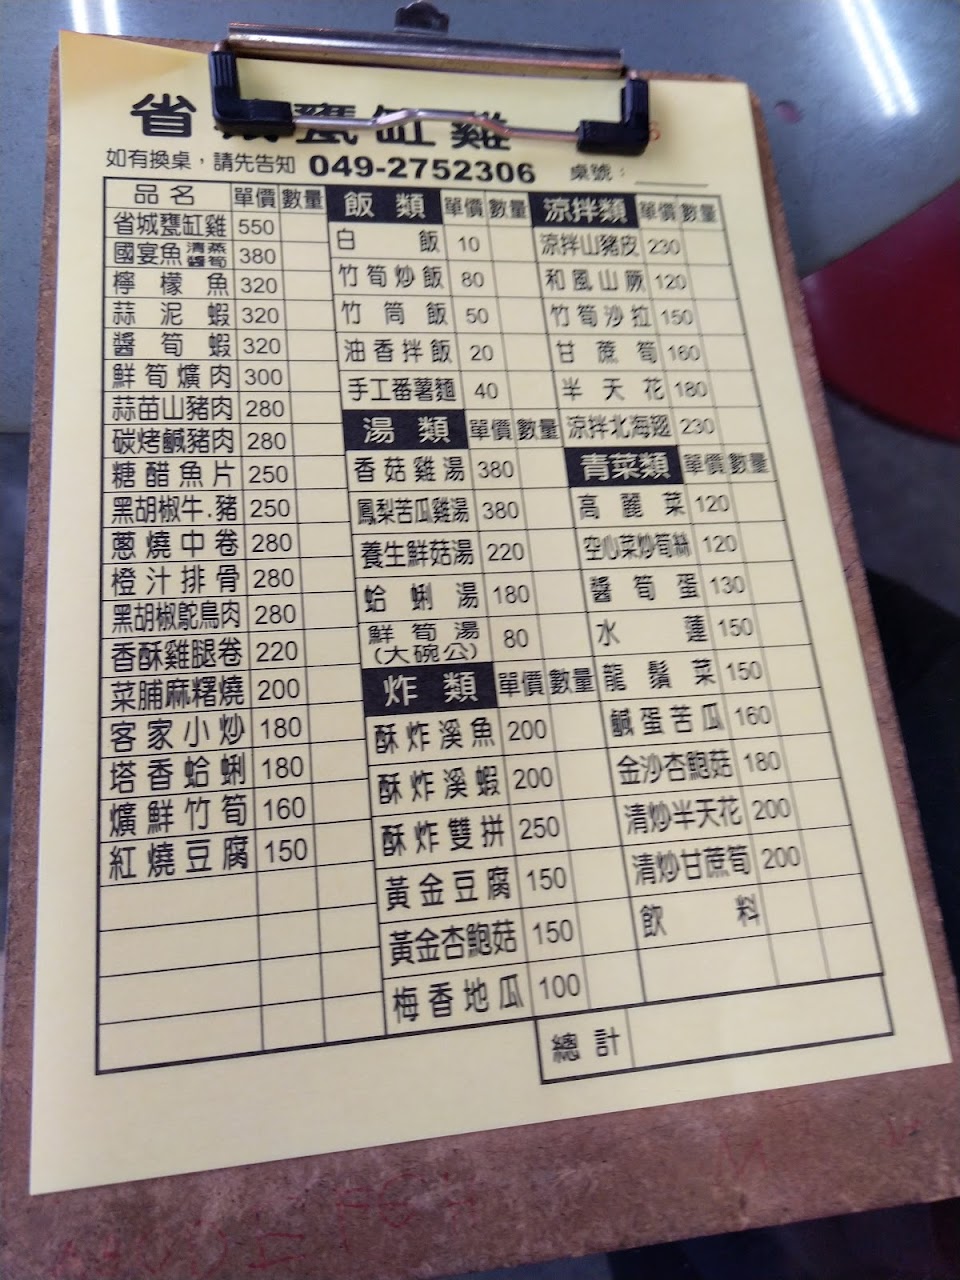 省城甕缸雞
如有換桌，請先告知 049-2752306 桌號：
品名 單價 數量
省城甕缸雞 550
國宴魚 清蒸 醬筍 380
檸檬魚 320
蒜泥蝦 320
醬筍蝦 320
鮮筍爌肉 300
蒜苗山豬肉 280
碳烤鹹豬肉 280
糖醋魚片 250
黑胡椒牛.豬 250
蔥燒中卷 280
橙汁排骨 280
黑胡椒鴕鳥肉 280
香酥雞腿卷 220
菜脯麻糬燒 200
客家小炒 180
塔香蛤蜊 180
爌鮮竹筍 160
紅燒豆腐 150
飯類 單價 數量
白飯 10
竹筍炒飯 80
竹筒飯 50
油香拌飯 20
手工番薯麵 40
湯類 單價 數量
香菇雞湯 380
鳳梨苦瓜雞湯 380
養生鮮菇湯 220
蛤蜊湯 180
鮮筍湯 80
(大碗公)
炸類 單價 數量
酥炸溪魚 200
酥炸溪蝦 200
酥炸雙拼 250
黃金豆腐 150
黃金杏鮑菇 150
梅香地瓜 100
涼拌類 單價 數量
涼拌山豬皮 230
和風山蕨 120
竹筍沙拉 150
甘蔗筍 160
半天花 180
涼拌北海翅 230
青菜類 單價 數量
高麗菜 120
空心菜炒筍絲 120
醬筍蛋 130
水蓮 150
龍鬚菜 150
鹹蛋苦瓜 160
金沙杏鮑菇 180
清炒半天花 200
清炒甘蔗筍 200
飲料
總計